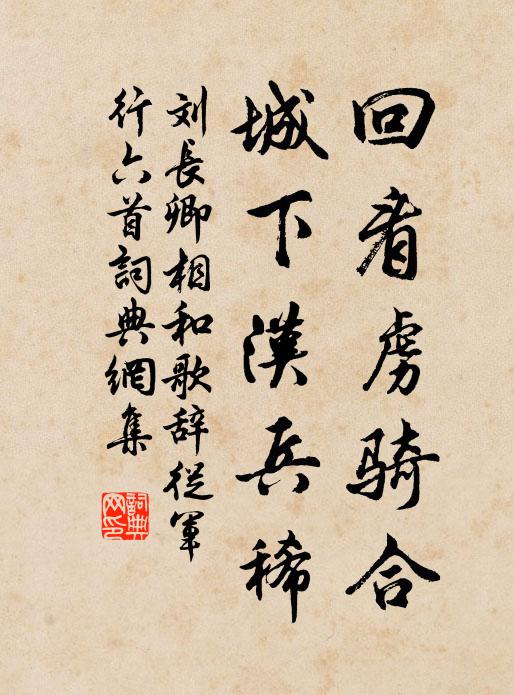 回看虜騎合
城下漢兵稀
刘長卿相和歌辞從軍
行六首詞典網集
詞典網印